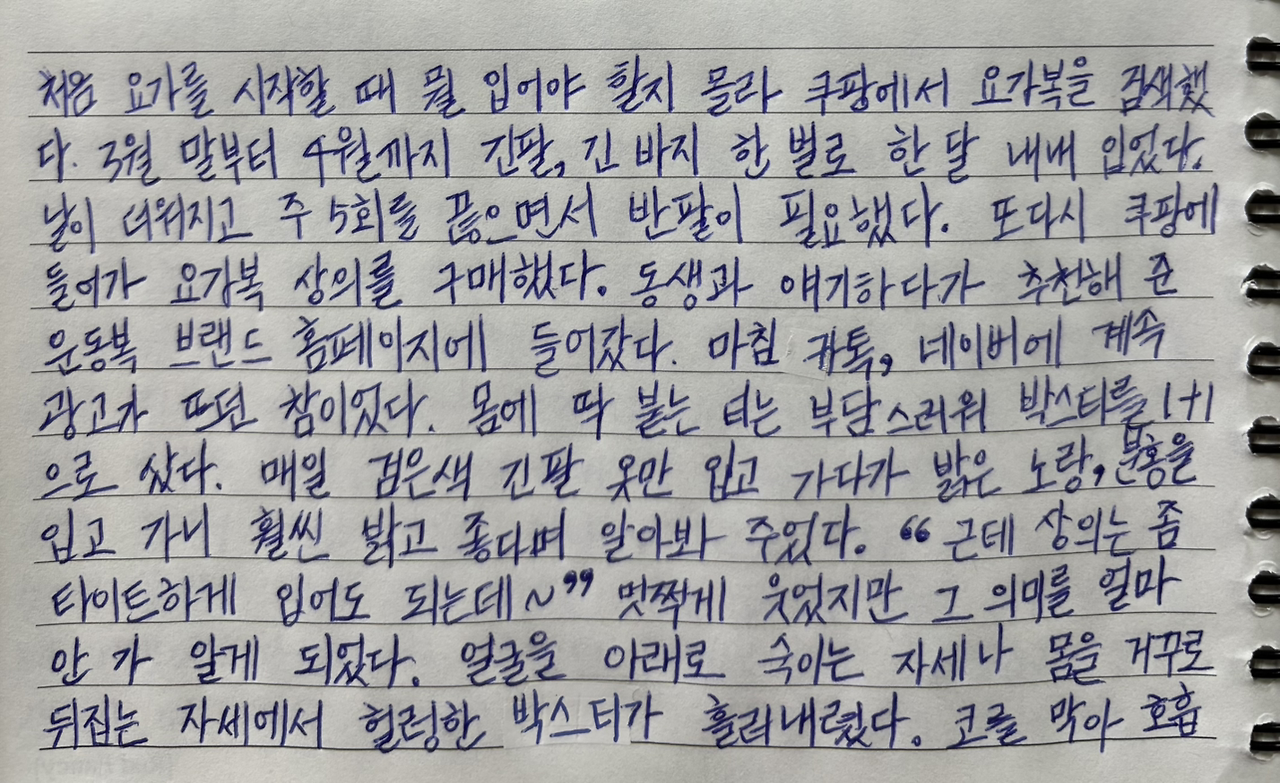 처음 요가를 시작할 때 뭘 입어야 할지 몰라 쿠팡에서 요가복을 검색했
다. 3월 말부터 4월까지 긴팔, 긴 바지 한 벌로 한 달 내내 입었다.
날이 더워지고 주 5회를 끊으면서 반팔이 필요했다. 또다시 쿠팡에
들어가 요가복 상의를 구매했다. 동생과 얘기하다가 추천해 준
운동복 브랜드 홈페이지에 들어갔다. 마침 카톡, 네이버에 계속
광고가 뜨던 참이었다. 몸에 딱 붙는 티는 부담스러워 박스티를 1+1
으로 샀다. 매일 검은색 긴팔 옷만 입고 가다가 밝은 노랑, 분홍을
입고 가니 훨씬 밝고 좋다며 알아봐 주었다. “근데 상의는 좀
타이트하게 입어도 되는데~” 멋쩍게 웃었지만 그 의미를 얼마
안 가 알게 되었다. 얼굴을 아래로 숙이는 자세나 몸을 거꾸로
뒤집는 자세에서 헐렁한 박스티가 흘러내렸다. 코를 막아 호흡